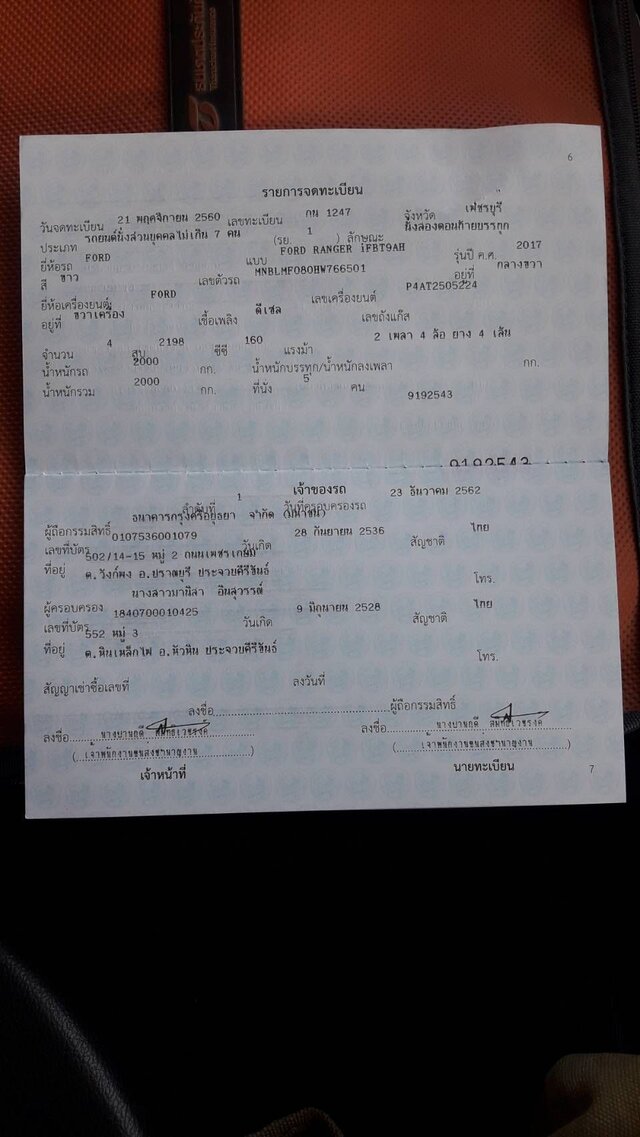 ธนชาตประกันภัย
Thanachart Insurance
6
รายการจดทะเบียน
วันจดทะเบียน 21 พฤศจิกายน 2560 เลขทะเบียน กน 1247 จังหวัด เพชรบุรี
ประเภท รถยนต์นั่งส่วนบุคคลไม่เกิน 7 คน (รย. 1 ) ลักษณะ นั่งสองตอนท้ายบรรทุก
ยี่ห้อรถ FORD แบบ FORD RANGER iFBT9AH รุ่นปี ค.ศ. 2017
สี ขาว เลขตัวรถ MNBLMF080HW766501 อยู่ที่ กลางขวา
ยี่ห้อเครื่องยนต์ FORD เลขเครื่องยนต์ P4AT2505224
อยู่ที่ ขวาเครื่อง เชื้อเพลิง ดีเซล เลขถังแก๊ส
จำนวน 4 สูบ 2198 ซีซี 160 แรงม้า 2 เพลา 4 ล้อ ยาง 4 เส้น
น้ำหนักรถ 2000 กก. น้ำหนักบรรทุก/น้ำหนักลงเพลา กก.
น้ำหนักรวม 2000 กก. ที่นั่ง 5 คน
9192543
9192543
เจ้าของรถ
ลำดับที่ 1 วันที่ครอบครองรถ 23 ธันวาคม 2562
ผู้ถือกรรมสิทธิ์ ธนาคารกรุงศรีอยุธยา จำกัด (มหาชน)
เลขที่บัตร 0107536001079 วันเกิด 28 กันยายน 2536 สัญชาติ ไทย
ที่อยู่ 502/14-15 หมู่ 2 ถนนเพชรเกษม
ต.วังก์พง อ.ปราณบุรี ประจวบคีรีขันธ์ โทร.
ผู้ครอบครอง นางสาวมานิสา อินสุวรรณ์
เลขที่บัตร 1840700010425 วันเกิด 9 มิถุนายน 2528 สัญชาติ ไทย
ที่อยู่ 552 หมู่ 3
ต.หินเหล็กไฟ อ.หัวหิน ประจวบคีรีขันธ์ โทร.
สัญญาเช่าซื้อเลขที่ ลงวันที่
ลงชื่อ ผู้ถือกรรมสิทธิ์
ลงชื่อ ลงชื่อ
(เจ้าพนักงานขนส่งชำนาญงาน) (เจ้าพนักงานขนส่งชำนาญงาน)
เจ้าหน้าที่ นายทะเบียน
7